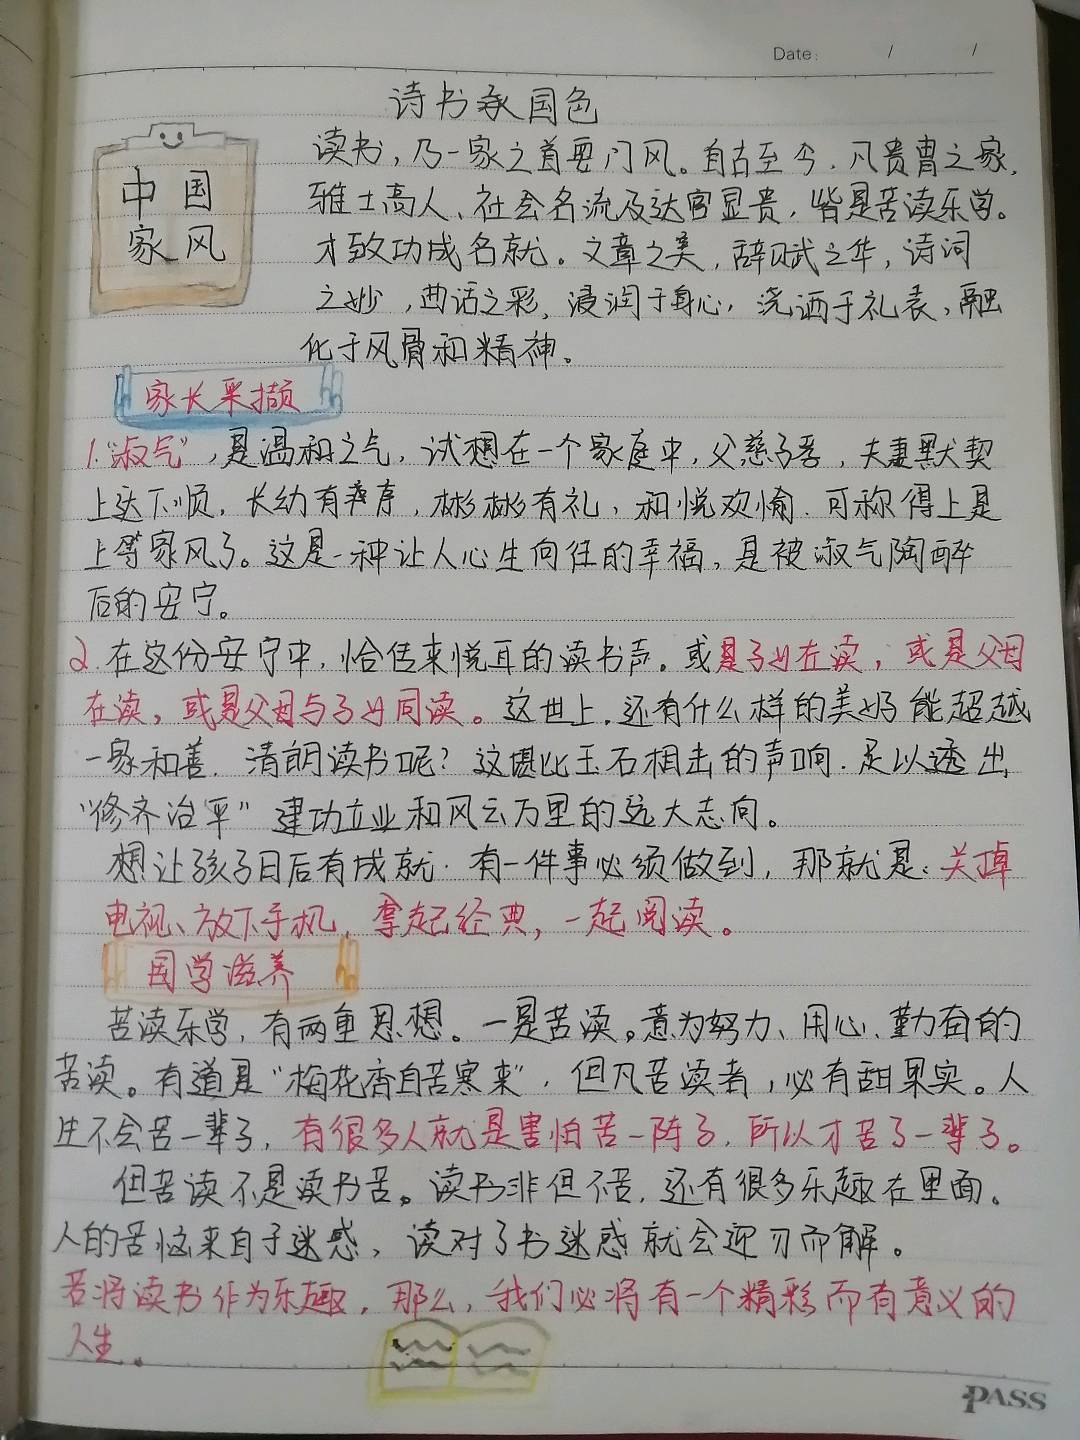 Date: / /
诗书承国色
中国
家风
读书,乃一家之首要门风。自古至今,凡贵胄之家,
雅士高人、社会名流及达官显贵,皆是苦读乐学。
才致功成名就。文章之美,辞赋之华,诗词
之妙,曲话之彩,浸润于身心,浇洒于礼表,融
化于风骨和精神。
家长采撷
1.“淑气”,是温和之气,试想在一个家庭中,父慈子孝,夫妻默契
上达下顺,长幼有序,彬彬有礼,和悦欢愉.可称得上是
上等家风了。这是一种让人心生向往的幸福,是被淑气陶醉
后的安宁。
2.在这份安宁中,恰传来悦耳的读书声。或是子女在读,或是父母
在读,或是父母与子女同读。这世上,还有什么样的美好能超越
一家和善.清朗读书呢?这堪比玉石相击的声响.足以透出
“修齐治平”建功立业和风云万里的远大志向。
想让孩子日后有成就.有一件事必须做到,那就是:关掉
电视、放下手机,拿起经典,一起阅读。
国学滋养
苦读乐学,有两重思想。一是苦读。意为努力、用心、勤奋的
苦读。有道是“梅花香自苦寒来”,但凡苦读者,必有甜果实。人
生不会苦一辈子,有很多人就是害怕苦一阵子,所以才苦了一辈子。
但苦读不是读书苦。读书非但不苦,还有很多乐趣在里面。
人的苦恼来自于迷惑,读对了书迷惑就会迎刃而解。
若将读书作为乐趣,那么,我们必将有一个精彩而有意义的
人生.
PASS